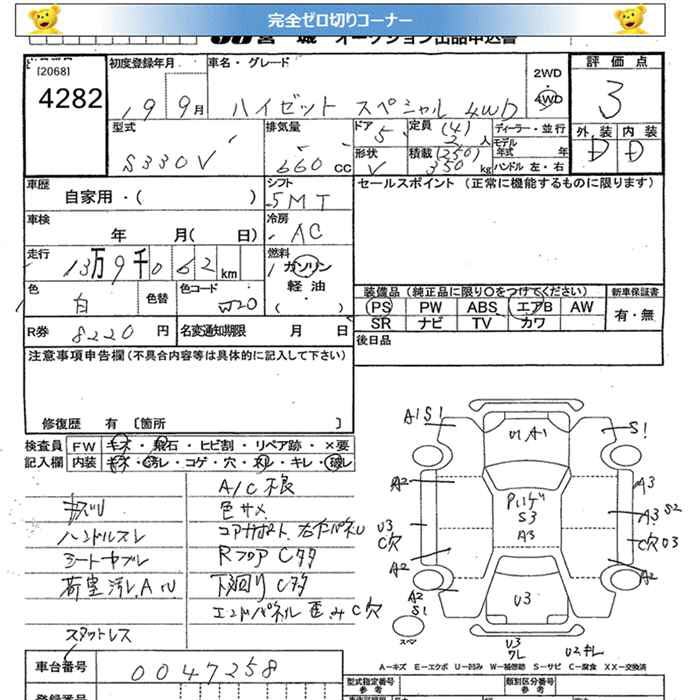 完全ゼロ切りコーナー
宮城 オークション出品申込書
[2068]
4282
初度登録年月
19 9月
車名・グレード
ハイゼット スペシャル 4WD
2WD
4WD
評価点
3
型式
S330V
排気量
660 cc
ドア
5
定員 (4)
2人
ディーラー・並行
モデル年式 年
形状
V
積載 (250)
350 kg
ハンドル 左・右
外装 内装
D D
車歴
自家用・( )
シフト
5MT
セールスポイント (正常に機能するものに限ります)
車検
年 月( 日)
冷房
AC
走行
13万9千062km
燃料
ガソリン
軽油
( )
色
白
色替
色コード
W20
装備品 (純正品に限り○をつけてください)
新車保証書
PS PW ABS エアB AW
SR ナビ TV カワ
有・無
R券 8220 円
名変通知期限 月 日
後日品
注意事項申告欄 (不具合内容等は具体的に記入して下さい)
修復歴 有 〔箇所 〕
検査員 FW キズ・飛石・ヒビ割・リペア跡・×要
記入欄 内装 キズ・汚レ・コゲ・穴・ネレ・キレ・破レ
A/C不良
キズU
色サメ
ハンドルスレ
コアサポート、右左パネU
シートヤブレ
RフロアCタタ
荷室汚レ、A・U
下回りCタタ
エンドパネル歪みC穴
スタットレス
A1S1
U1A1
S1
A2
A3
A3 S2
S3
A3
U3
C穴
C穴U3
A2
A2
A2
S1
U3
U3
ワレ
U2キレ
A－キズ E－エクボ U－凹み W－補修跡 S－サビ C－腐食 XX－交換済
車台番号
0047258
型式指定番号
参考
類別区分番号
参考
登録番号